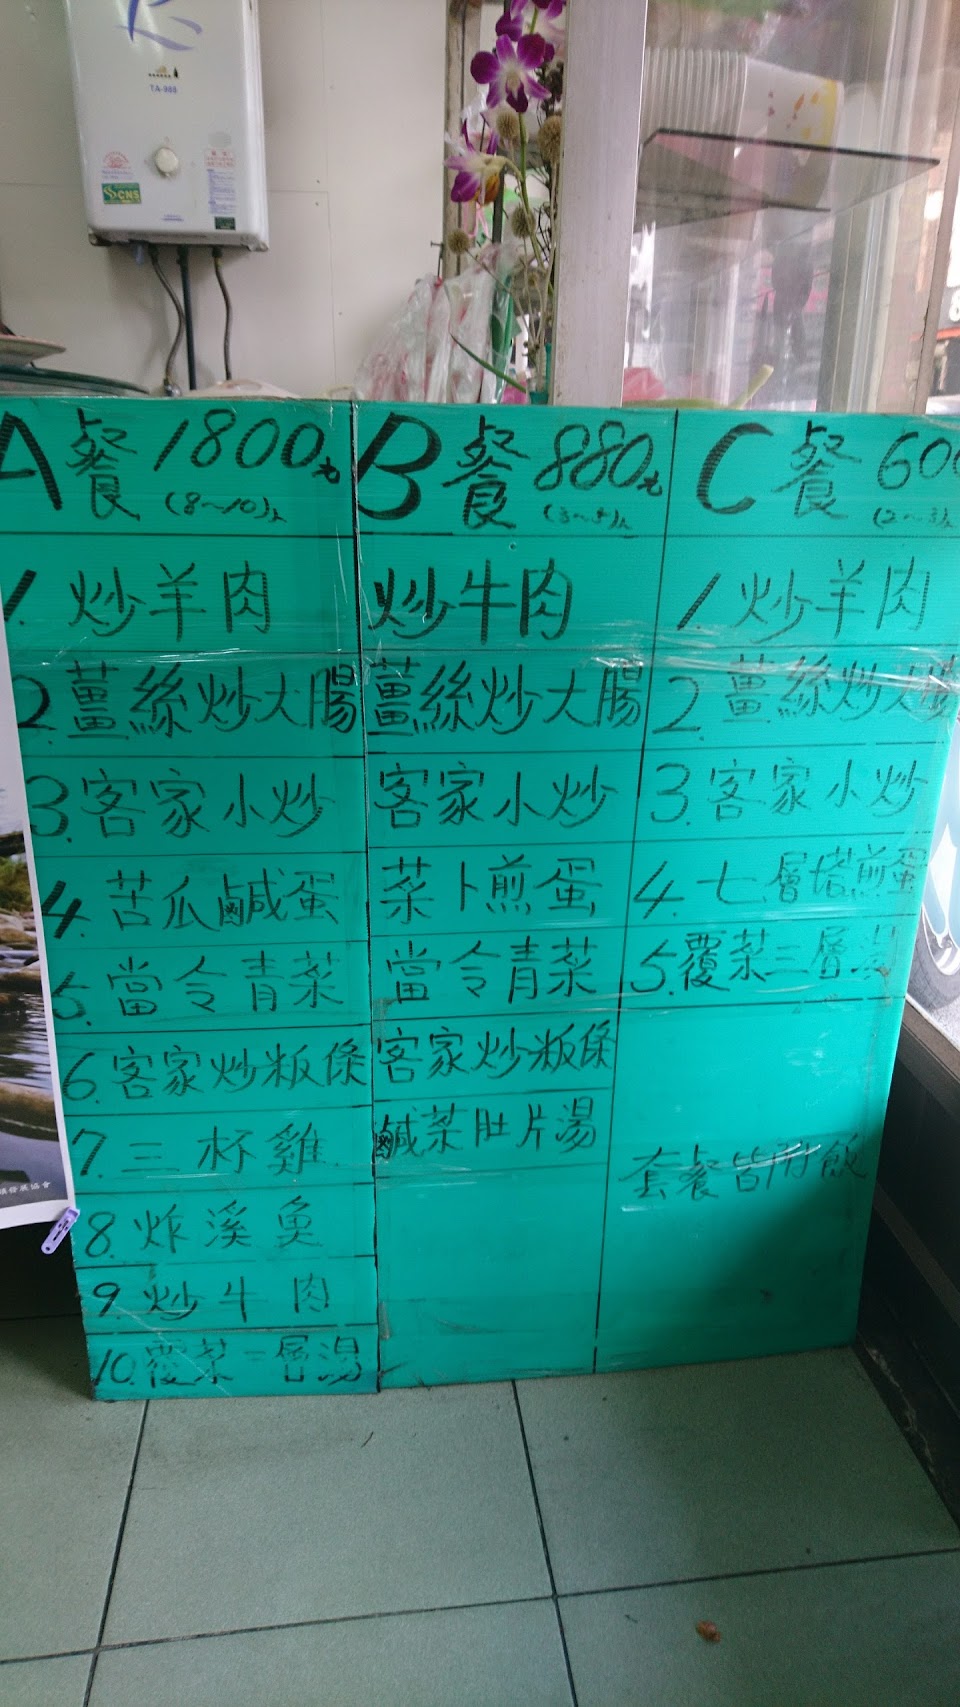 TA-888
CNS
A餐 1800元
(8~10)人
1. 炒羊肉
2. 薑絲炒大腸
3. 客家小炒
4. 苦瓜鹹蛋
5. 當令青菜
6. 客家炒粄條
7. 三杯雞
8. 炸溪魚
9. 炒牛肉
10. 覆菜三層湯
B餐 880元
(3~5)人
炒牛肉
薑絲炒大腸
客家小炒
菜卜煎蛋
當令青菜
客家炒粄條
鹹菜肚片湯
C餐 600
(2~3)人
1 炒羊肉
2. 薑絲炒大腸
3. 客家小炒
4. 七層塔煎蛋
5. 覆菜三層湯
套餐皆附飯
發展協會